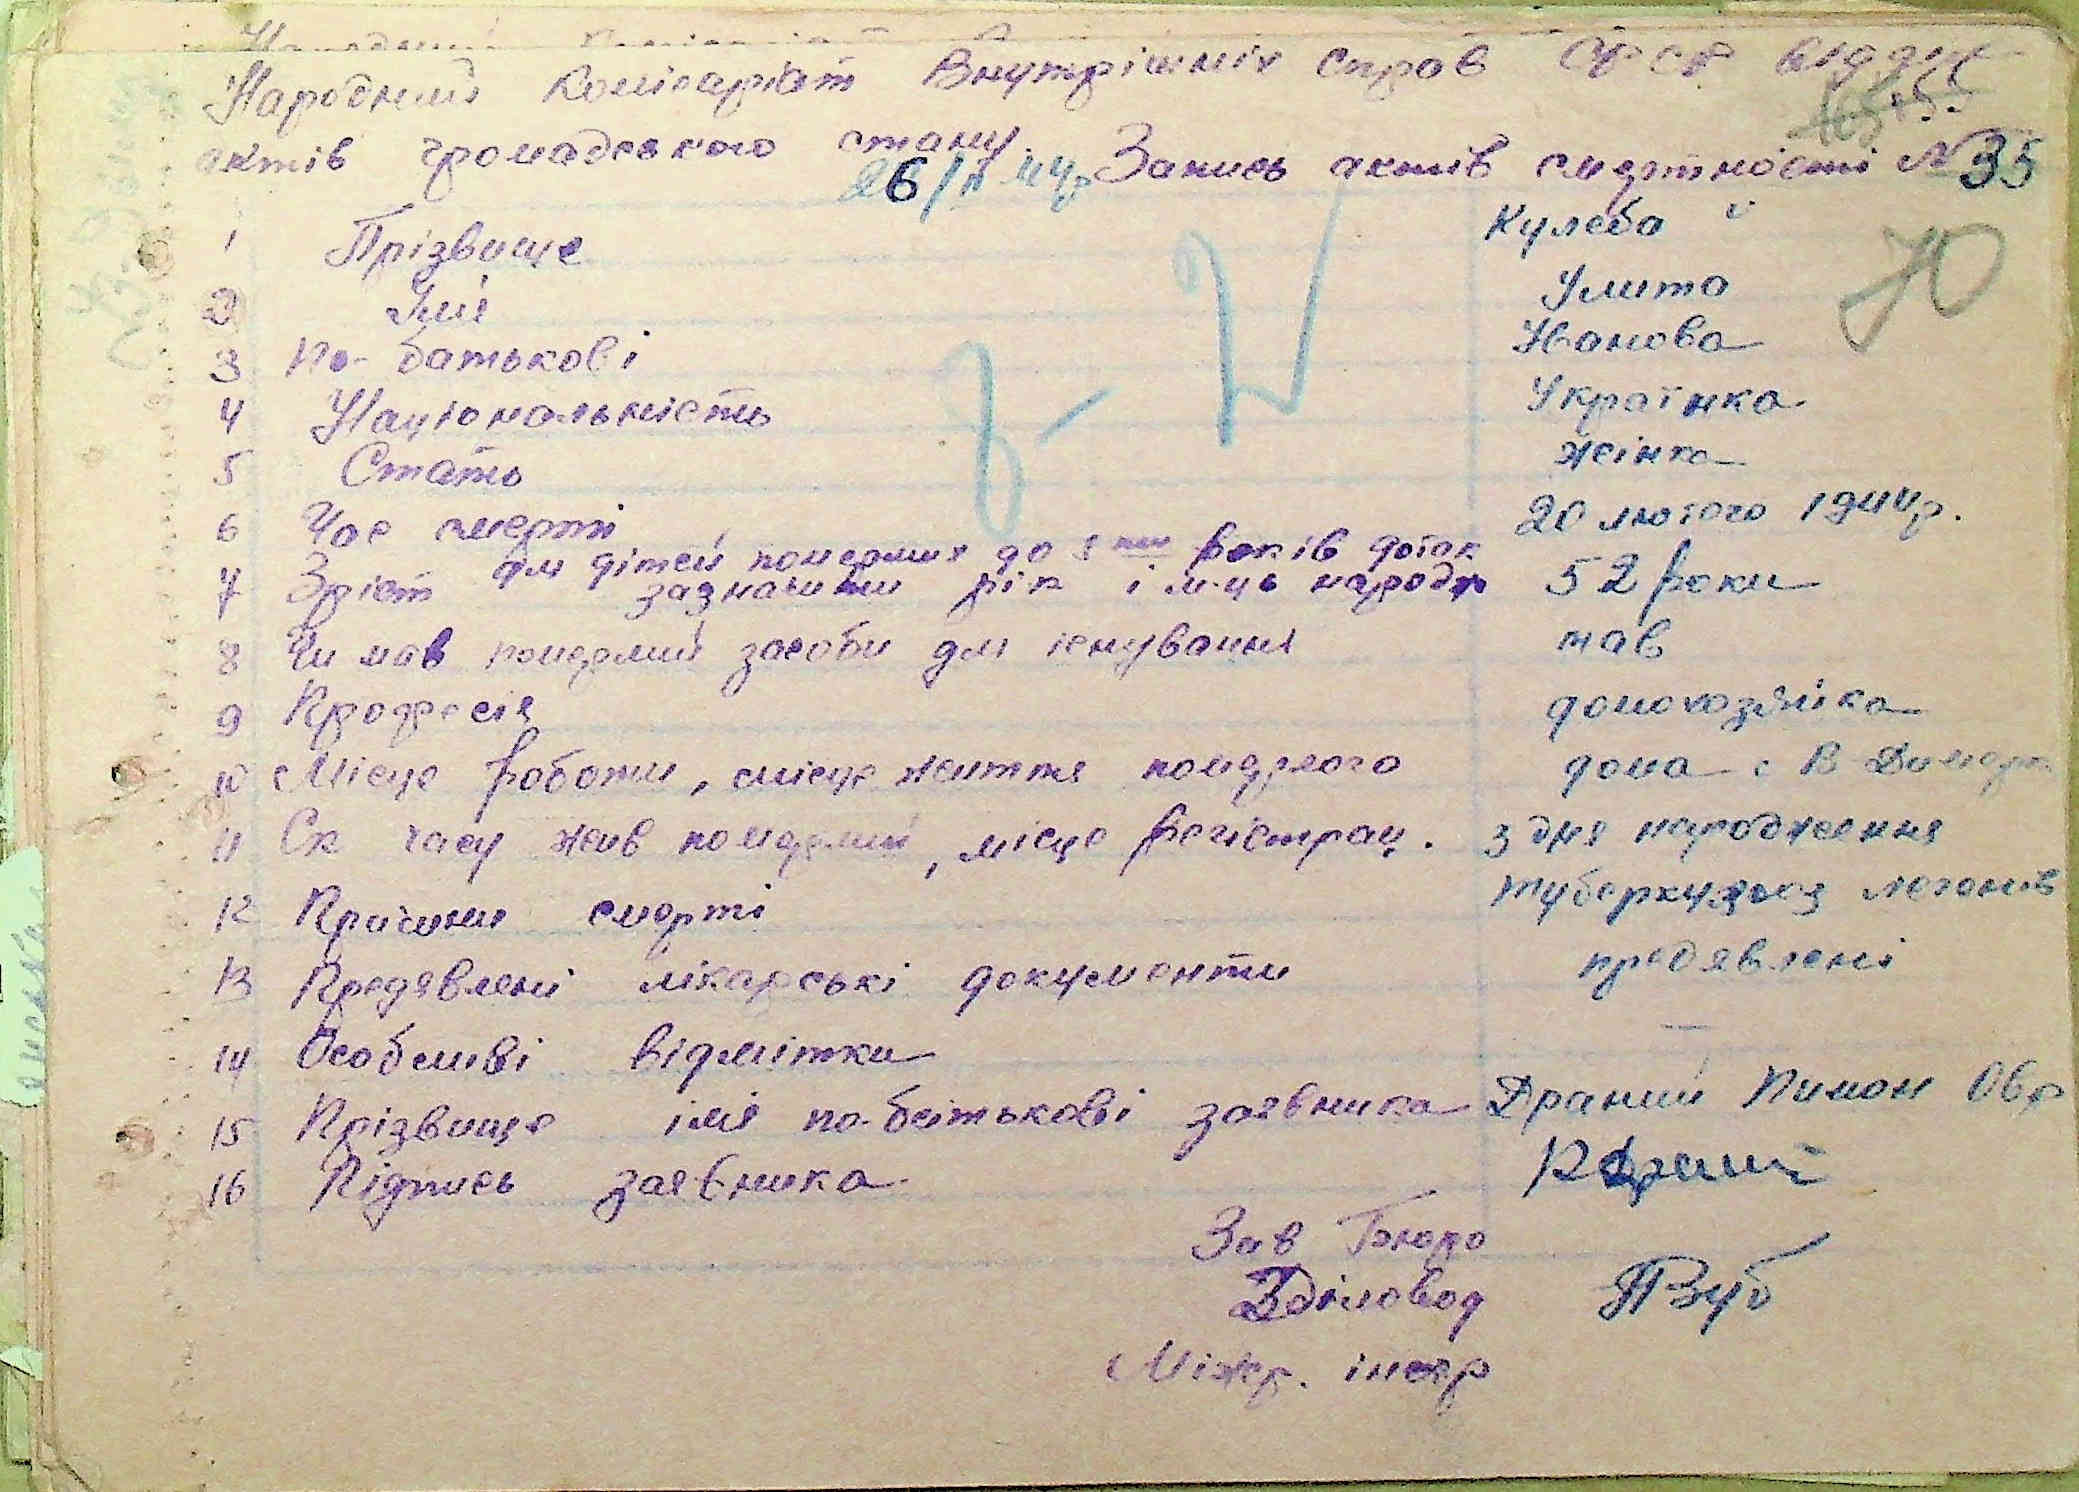 Народний Комісаріат Внутрішніх Справ
актів громадського стану. Запись актів смертності №35
26/II 44р
1 Прізвище Кулеба
2 Імя Улита
3 По-батькові Иванова
4 Національність Українка
5 Стать жінка
6 Час смерті 20 лютого 1944р.
7 Зріст для дітей померших до років
зазначити рік і м-ць народж 52 роки
8 Чи мав померший засоби для існування мав
9 Професія домохозяйка
10 Місце роботи, місце життя померлого дома с В
11 Ск часу жив померлий, місце регістрац. з дня народження
12 Причини смерті туберкульоз легенів
13 Предявлені лікарські документи предявлені
14 Особливі відмітки —
15 Прізвище імя по-батькові заявника Драний Пимон
16 Підпись заявника
Зав Бюро
Діловод Зуб
Міжр. інспр